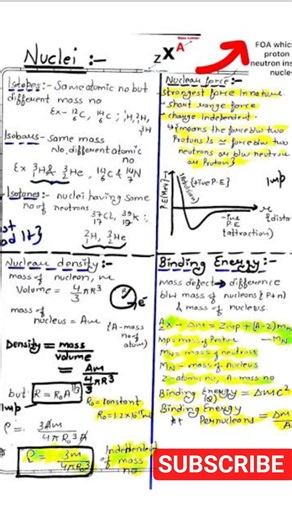 Nuclei :-
zXA
FOA whic
proton
neutron ins
nucle
Isotopes :- Same atomic no but
different mass no
Ex - 12C, 14C ; 1H, 2H,
3H
Isobars - same mass
No, different atomic
no
Ex 3H & 3He, 14C & 14N
Isotones: nuclei having same
no of neutrons
37Cl, 39K ;
2H, 3He
Nuclear force :-
strongest force in nature
short range force
charge independent.
it means the force b/w two
Protons is = force b/w two
neutrons or b/w neutron
or Proton
P.E(MeV)
(+ive P.E)
Imp
-ive
P.E
(attraction)
(distan
Nuclear density :-
mass of nucleon, m
Volume = 4/3 πR3
e-
mass of
nucleus = Am
(A - mass
no of
atom)
Density = mass
volume
= Am
4/3 πR3
but R = R0A1/3
Imp
R0 = constant
3Am
4πR03A
ρ = 3m
4πR03
Independent
of mass
no
Binding Energy :-
mass defect → difference
b/w mass of nucleons (P+n)
& mass of nucleus.
Δm = Zmp + (A-Z)mn
- MN
mp = mass of proton
mn = mass of neutron
MN - mass of nucleus
Z - atomic no, A - mass no
Binding Energy = Δmc2
Binding Energy
Per nucleon = Δm
A
SUBSCRIBE